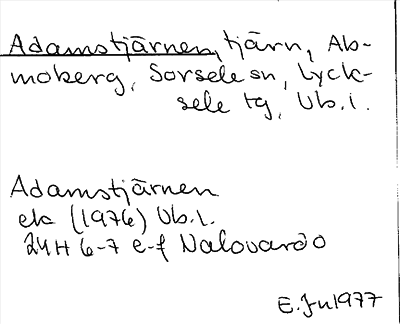 Adamstjärnen, tjärn, Ab-
moberg, Sorsele sn, Lyck-
sele tg, Vb.l.
Adamstjärnen
ek (1976) Vb.l.
24H 6-7 e-f Nalovardo
E.Jn 1977